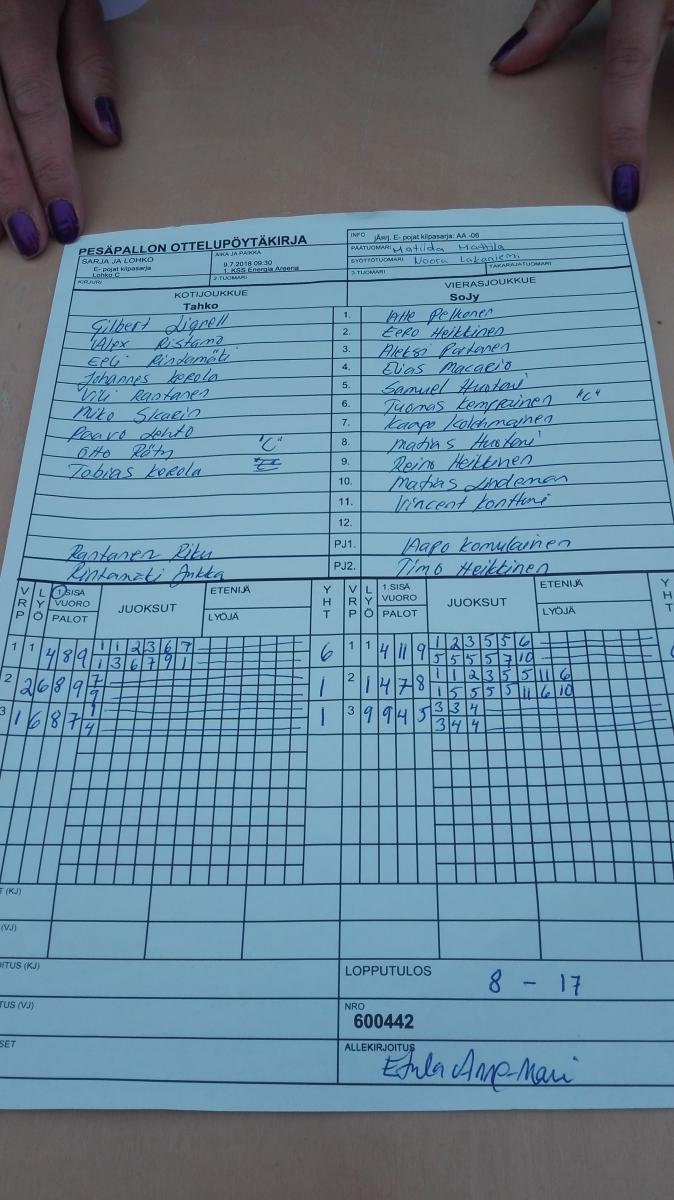 PESÄPALLON OTTELUPÖYTÄKIRJA
INFO jÄerj. E- pojat kilpasarja: AA -06
SARJA JA LOHKO
E- pojat kilpasarja
Lohko C
AIKA JA PAIKKA
9.7.2018 09:30
1. KSS Energia Areena
PÄÄTUOMARI Matilda Mattila
SYÖTTÖTUOMARI Noora Lakaniemi
KIRJURI
2-TUOMARI
3-TUOMARI
TAKARAJATUOMARI
KOTIJOUKKUE
Tahko
VIERASJOUKKUE
SoJy
Gilbert 1. Pelkonen
Alex Ristamo 2. Eero Heikkinen
Eeli Rintamäki 3. Aleksi
Johannes Kerola 4. Elias Macario
Vili Rantanen 5. Samuel
Niko Skarin 6. Tuomas Kemppainen "C"
Paavo Lehto 7. Kaapo Kolehmainen
Otto Räty "C" 8. Matias
Tobias Kerola 9. Reino Heikkinen
10. Matias Lindeman
11. Vincent Konttini
12.
Rantanen Riku PJ1. Aapo Komulainen
Rintamäki Jukka PJ2. Timo Heikkinen
VRP LYÖ 1.SISÄ VUORO PALOT JUOKSUT ETENIJÄ LYÖJÄ YHT VRP LYÖ 1.SISÄ VUORO PALOT JUOKSUT ETENIJÄ LYÖJÄ YHT
1 1 4 8 9 1 1 2 3 6 7 6 1 1 4 11 9 1 2 3 5 5 6
1 3 6 7 9 1 5 5 5 5 7 10
2 2 6 8 9 7 1 2 1 4 7 8 1 1 2 3 5 5 11 6
9 1 5 5 5 5 11 6 10
3 1 6 8 7 1 1 3 9 9 4 5 3 3 4
4 3 4 4
(KJ)
(VJ)
(KJ)
LOPPUTULOS 8 - 17
(VJ)
NRO
600442
ALLEKIRJOITUS
Anne-Mari